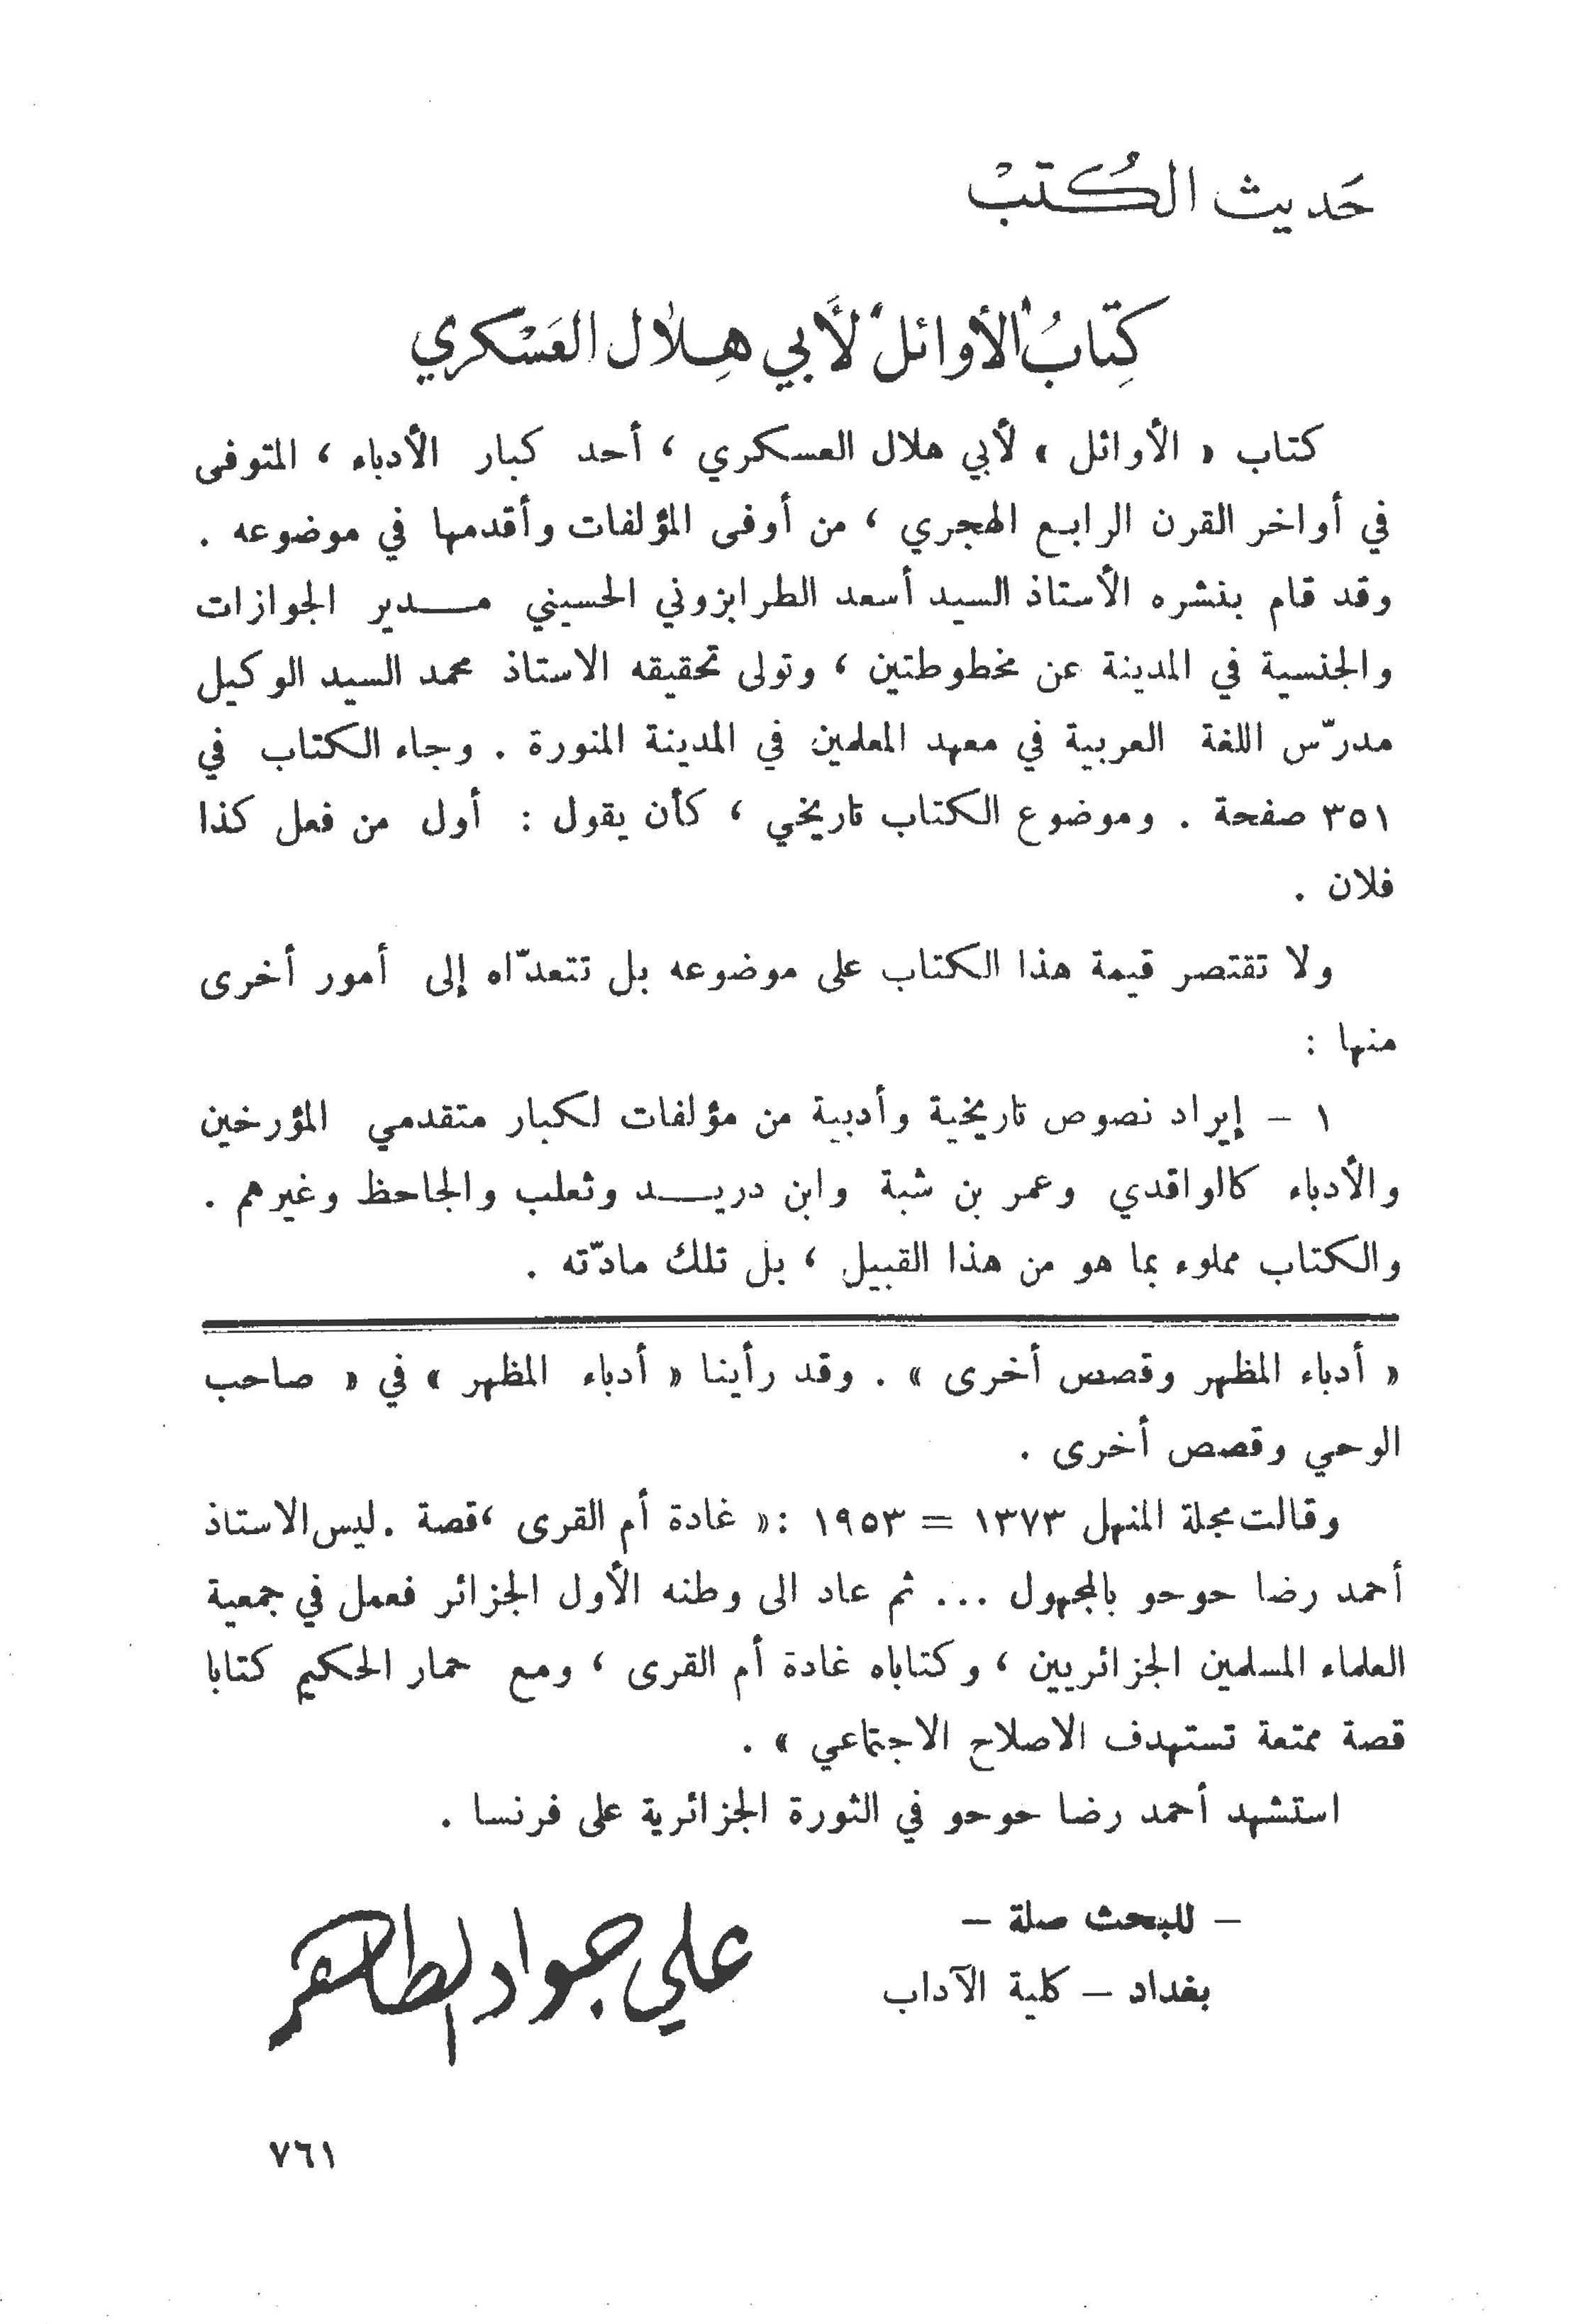 حَديث الكُتبْ
كِتَابُ "الأوائل" لأبي هِلال العَسْكري
كتاب « الأوائل » لأبي هلال العسكري ، أحد كبار الأدباء ، المتوفى
في أواخر القرن الرابع الهجري ، من أوفى المؤلفات وأقدمها في موضوعه .
وقد قام بنشره الأستاذ السيد أسعد الطرابزوني الحسيني مـــدير الجوازات
والجنسية في المدينة عن مخطوطتين ، وتولى تحقيقه الاستاذ محمد السيد الوكيل
مدرّس اللغة العربية في معهد المعلمين في المدينة المنورة . وجاء الكتاب في
٣٥١ صفحة . وموضوع الكتاب تاريخي ، كأن يقول : أول من فعل كذا
فلان .
ولا تقتصر قيمة هذا الكتاب على موضوعه بل تتعدّاه إلى أمور أخرى
منها :
١ – إيراد نصوص تاريخية وأدبية من مؤلفات لكبار متقدمي المؤرخين
والأدباء كالواقدي وعمر بن شبة وابن دريـــد وثعلب والجاحظ وغيرهم .
والكتاب مملوء بما هو من هذا القبيل ، بل تلك مادّته .
« أدباء المظهر وقصص أخرى » . وقد رأينا « أدباء المظهر » في « صاحب
الوحي وقصص أخرى .
وقالت مجلة المنهل ١٣٧٣ = ١٩٥٣ :« غادة أم القرى ،قصة .ليس الاستاذ
أحمد رضا حوحو بالمجهول ... ثم عاد الى وطنه الأول الجزائر فعمل في جمعية
العلماء المسلمين الجزائريين ، وكتاباه غادة أم القرى ، ومع حمار الحكيم كتابا
قصة ممتعة تستهدف الاصلاح الاجتماعي » .
استشهد أحمد رضا حوحو في الثورة الجزائرية على فرنسا .
– للبحث صلة –
بغداد – كلية الآداب
علي جواد الطاهر
٧٦١